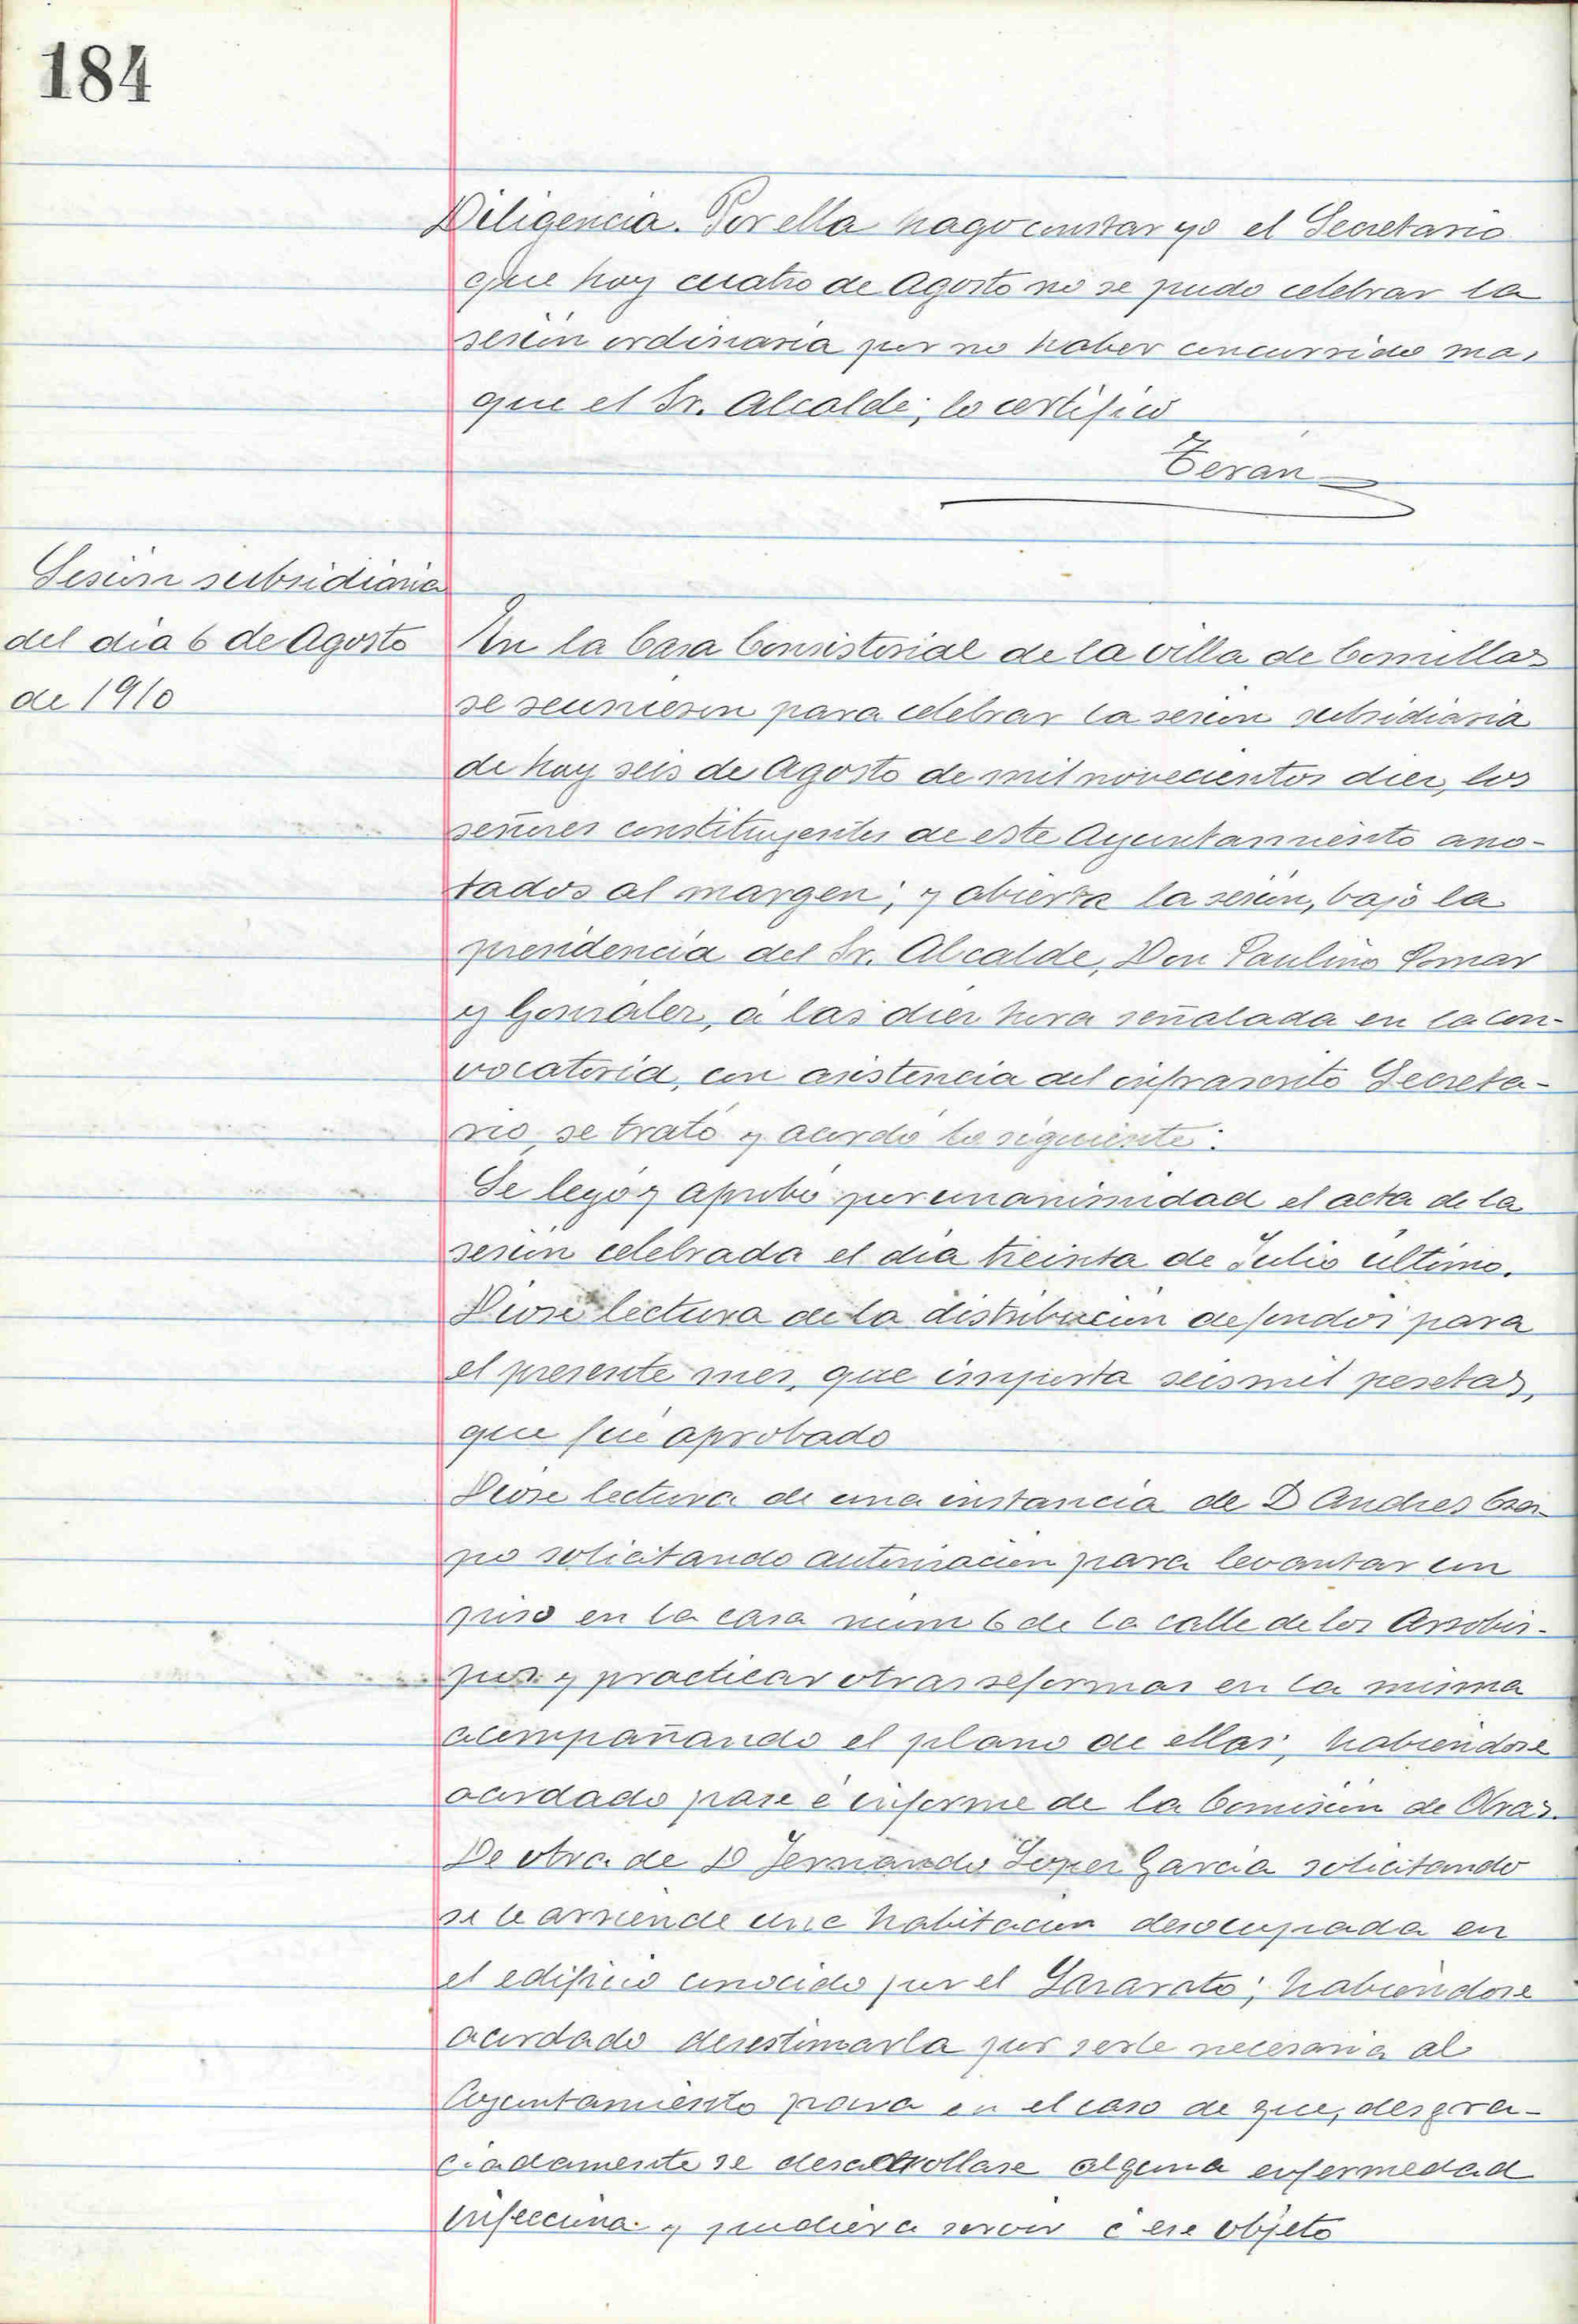 184
Diligencia. Por ella hago constar yo el Secretario
que hoy cuatro de Agosto no se pudo celebrar la
sesión ordinaria por no haber concurrido mas
que el Sr. Alcalde; lo certifico
Terán
Sesión subsidiaria
del dia 6 de Agosto
de 1910
En la Casa Consistorial de la villa de Comillas
se reunieron para celebrar la sesión subsidiaria
de hoy seis de Agosto de mil novecientos diez, los
señores constituyentes de este Ayuntamiento ano-
tados al margen; y abierta la sesión, bajo la
presidencia del Sr. Alcalde, Don Paulino Pomar
y González, á las diez hora señalada en la con-
vocatoria, con asistencia del infrascrito Secreta-
rio, se trató y acordó lo siguiente:
Se leyó y aprobó por unanimidad el acta de la
sesión celebrada el dia treinta de Julio último.
Diose lectura de la distribución de fondos para
el presente mes, que importa seis mil pesetas,
que fué aprobado
Diose lectura de una instancia de D Andres
solicitando autorización para levantar un
piso en la casa núm 6 de la calle de los Arzobis-
pos y practicar otras reformas en la misma
acompañando el plano de ellas; habiéndose
acordado pase á informe de la Comisión de Obras.
De otra de D Fernando Lopez Garcia solicitando
se le arriende una habitación desocupada en
el edificio conocido por el Lazareto; habiéndose
acordado desestimarla por serle necesaria al
Ayuntamiento para en el caso de que, desgra-
ciadamente se desarrollase alguna enfermedad
infecciosa y pudiera servir á ese objeto